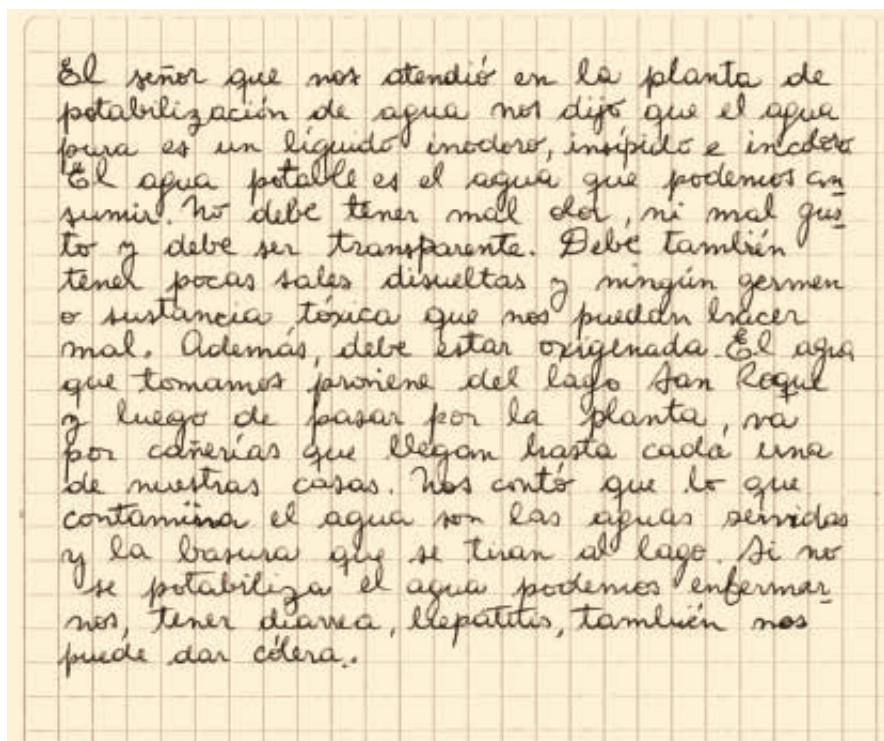 El señor que nos atendió en la planta de
potabilización de agua nos dijo que el agua
pura es un líquido inodoro, insípido e incoloro
El agua potable es el agua que podemos con
sumir. No debe tener mal olor, ni mal gus_
to y debe ser transparente. Debe también
tener pocas sales disueltas y ningún germen
o sustancia tóxica que nos puedan hacer
mal. Además, debe estar oxigenada. El agua
que tomamos proviene del lago San Roque
y luego de pasar por la planta, va
por cañerías que llegan hasta cada una
de nuestras casas. Nos contó que lo que
contamina el agua son las aguas servidas
y la basura que se tiran al lago. Si no
se potabiliza el agua podemos enfermar_
nos, tener diarrea, hepatitis, también nos
puede dar cólera..